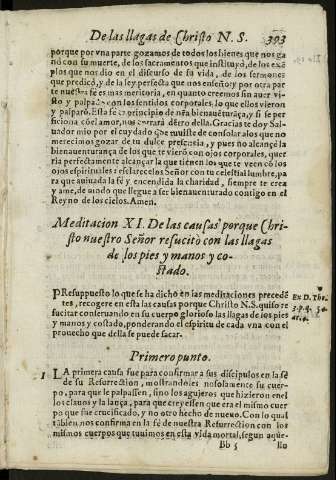 De las llagas de Christo N. S. 393
porque por vna parte gozamos de todos los bienes que nos ga
nó con su muerte, de los sacramentos que instituyó, de los exẽ
plos que nos dio en el discurso de su vida, de los sermones
que predicò, y de la ley perfecta que nos enseñò; y por otra par
te nuestra fé es mas meritoria, en quanto creemos sin auer vis-
to y palpado con los sentidos corporales, lo que ellos vieron
y palparõ. Esta fé es principio de nr̃a bienauẽturaça, y si se per
ficiona cõ el amor, nos entrará dẽtro della. Gracias te doy Sal-
uador mio por el cuydado que tuuiste de consolar a los que no
merecimos gozar de tu dulce presencia, y pues no alcançẽ la
bienauenturança de los que te vierõ con ojos corporales, quer
ria perfectamente alcançar la que tienen los que te veen cõ los
ojos espirituales: esclarecelos Señor con tu celestial lumbre, pa
ra que auiuada la fé y encendida la charidad, siempre te crea
y ame, de modo que llegue a ser bienauenturado contigo en el
Reyno de los cielos. Amen.
Meditacion XI. De las causas porque Chri-
sto nuestro Señor resucitò con las llagas
de los pies y manos y co-
stado.
PResuppuesto lo que se ha dicho en las meditaciones precedẽ
tes, recogere en esta las causas porque Christo N. S. quiso re
sucitar conseruando en su cuerpo glorioso las llagas de los pies
y manos y costado, ponderando el espiritu de cada vna con el
prouecho que della se puede sacar.
Ex D. Tho.
3. p. q. 54.
ar. 4.
Primero punto.
1 LA primera causa fue para confirmar a sus discipulos en la fé
de su Resurrection, mostrandoles no solamente su cuer-
po, para que le palpassen, sino los agujeros que hizieron en el
los clauos y la lança, para que creyessen que era el mismo cuer
po que fue crucificado, y no otro hecho de nueuo. Con lo qual
tãbien nos confirma en la fé de nuestra Resurrection con los
mismos cuerpos que tuuimos en esta vida mortal, segun aque-
Bb 5 llo